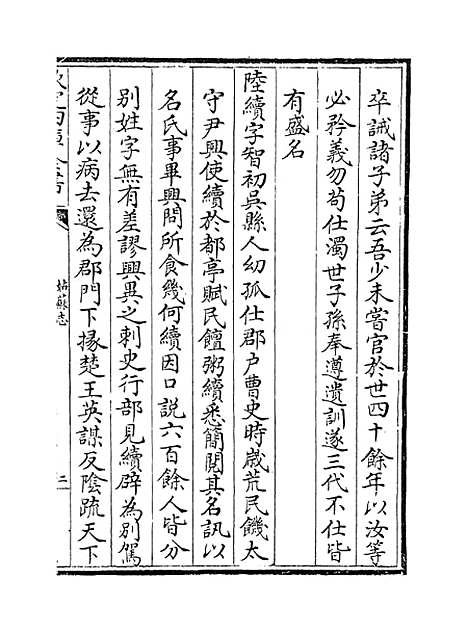 卒誡諸子弟云吾少未嘗官於世四十餘年以汝等
必矜義勿苟仕濁世子孫奉遵遺訓遂三代不仕皆
有盛名
陸續字智初吳縣人幼孤仕郡户曹史時歲荒民饑太
守尹興使續於都亭賦民饘粥續悉簡閱其名訊以
名氏事畢興問所食幾何續因口說六百餘人皆分
别姓字無有差謬興異之刺史行部見續辟為别駕
從事以病去還為郡門下掾楚王英謀反陰疏天下
欽定四庫全書
姑蘇志
二